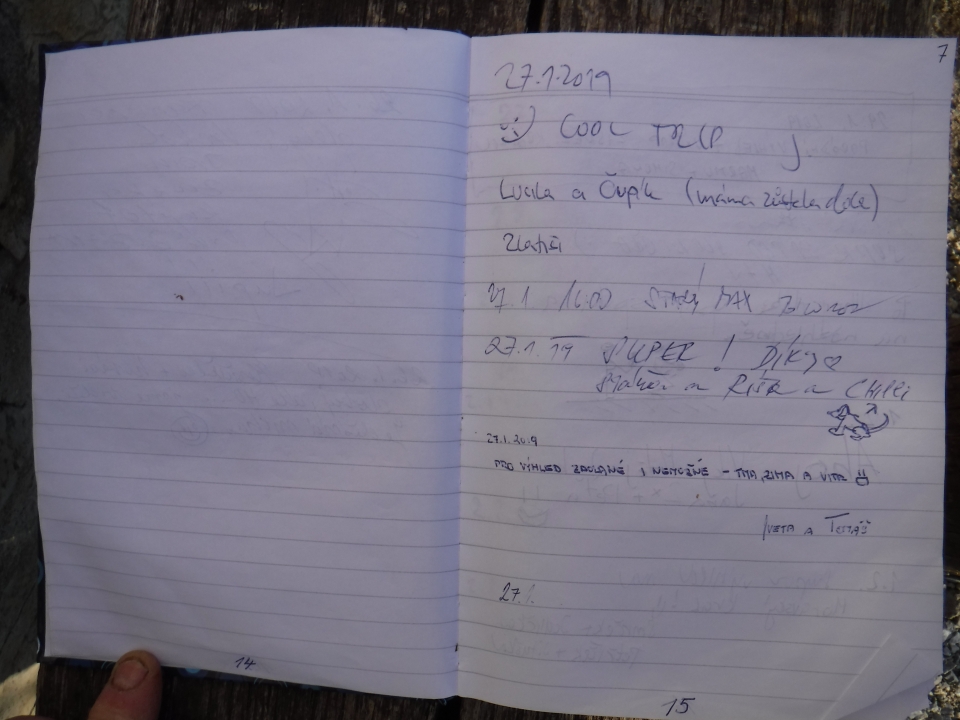 7
27.1.2019
COOL TRIP
Lucila a Čupík (máma zůstala dole)
Zlatíši
27.1 STARÝ MAX
27.1.19 SUPER! DÍKY
a RÍŠA a CHILLI
27.1.2019
PRO VÝHLED ZAOLANÉ I NEMOŽNÉ - TMA, ZIMA A VÍTR
IVETA a TOMÁŠ
27.1.
14
15